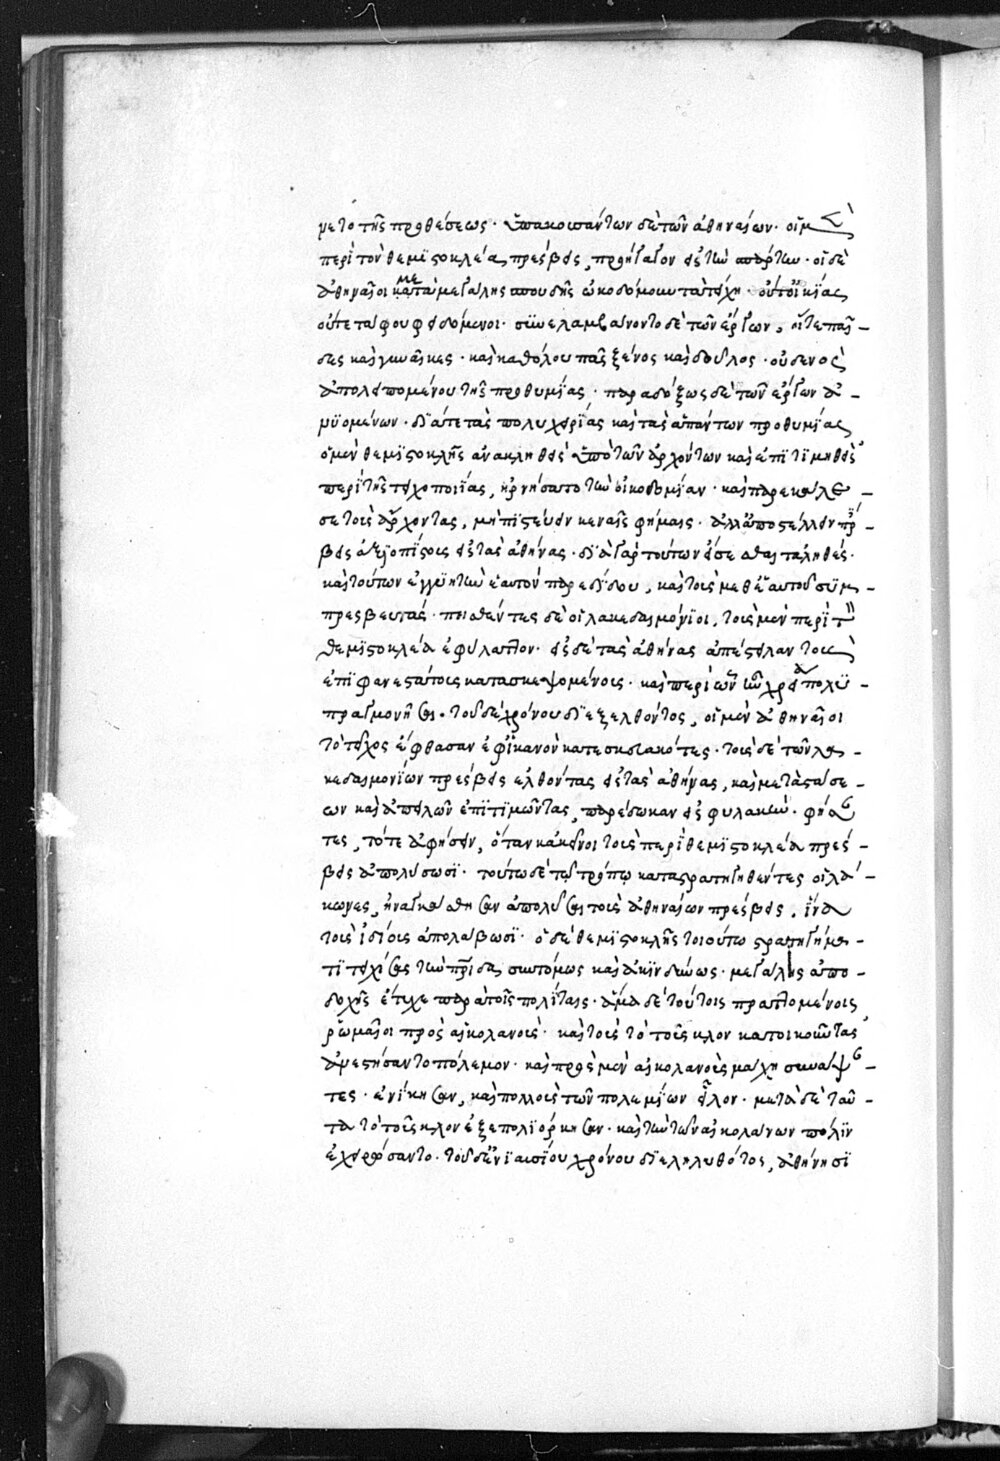 με το τῆς προθέσεως· ὑπακουσάντων δὲ τῶν ἀθηναίων· οἱ μὲν
περὶ τὸν θεμιστοκλέα πρέσβεις, προῆγαγον εἰς τὴν σπάρτην· οἱ δὲ
ἀθηναῖοι μετὰ μεγάλης σπουδῆς ὠκοδόμουν τὰ τείχη· οὔτ' οἰκίας
οὔτε τάφου φειδόμενοι· συνελαμβάνοντο δὲ τῶν ἔργων, οἵ τε παῖ-
δες καὶ γυναῖκες· καὶ καθόλου πᾶς ξένος καὶ δοῦλος· οὐδενὸς
ἀπολειπομένου τῆς προθυμίας· παραδόξως δὲ τῶν ἔργων ἀ-
νυομένων· διά τε τὰς πολυχειρίας καὶ τὰς ἁπάντων προθυμίας
ὁ μὲν θεμιστοκλῆς ἀνακληθεὶς ὑπὸ τῶν ἀρχόντων καὶ ἐπιτιμηθεὶς
περὶ τῆς τειχοποιίας, ἠρνήσατο τὴν οἰκοδομίαν· καὶ παρεκάλε-
σε τοὺς ἄρχοντας, μὴ πιστεύειν κεναῖς φήμαις· ἀλλ' ἀποστέλλειν πρέσ-
βεις ἀξιοπίστους εἰς τὰς ἀθήνας· διὰ γὰρ τούτων εἴσεσθαι τἀληθές·
καὶ τούτων ἐγγυητὴν ἑαυτὸν παρεδίδου, καὶ τοὺς μεθ' ἑαυτοῦ συμ-
πρεσβευτάς· πεισθέντες δὲ οἱ λακεδαιμόνιοι, τοὺς μὲν περὶ τὸν
θεμιστοκλέα ἐφύλαττον· εἰς δὲ τὰς ἀθήνας ἀπέστειλαν τοὺς
ἐπιφανεστάτους κατασκεψομένους· καὶ περὶ ὧν ἦν χρεία πολυ-
πραγμονῆσαι· τοῦ δὲ χρόνου διεξελθόντος, οἱ μὲν ἀθηναῖοι
τὸ τεῖχος ἔφθασαν ἐφ' ἱκανὸν κατεσκευακότες· τοὺς δὲ τῶν λα-
κεδαιμονίων πρέσβεις ἐλθόντας εἰς τὰς ἀθήνας, καὶ μετὰ στάσε-
ων καὶ ἀπειλῶν ἐπιτιμῶντας, παρέδωκαν εἰς φυλακήν· φήσαν-
τες, τότε ἀφήσειν, ὅταν κἀκεῖνοι τοὺς περὶ θεμιστοκλέα πρέσ-
βεις ἀπολύσωσι· τούτω δὲ τῷ τρόπῳ καταστρατηγηθέντες οἱ λά-
κωνες, ἠναγκάσθησαν ἀπολῦσαι τοὺς ἀθηναίων πρέσβεις, ἵνα
τοὺς ἰδίους ἀπολάβωσι· ὁ δὲ θεμιστοκλῆς τοιούτω στρατηγήμα-
τι τειχίσας τὴν πατρίδα συντόμως καὶ ἀκινδύνως· μεγάλης ἀπο-
δοχῆς ἔτυχε παρὰ τοῖς πολίταις· ἅμα δὲ τούτοις πραττομένοις
ῥωμαῖοι πρὸς αἰκολανούς· καὶ τοὺς τὸ τοῦσκλον κατοικοῦντας
ἀνεστήσαντο πόλεμον· καὶ πρὸς μὲν αἰκολανοὺς μάχη συνάψαν-
τες· ἐνίκησαν, καὶ πολλοὺς τῶν πολεμίων εἷλον· μετὰ δὲ ταῦ-
τα τὸ τοῦσκλον ἐξεπολιόρκησαν· καὶ τὴν τῶν αἰκολανῶν πόλιν
ἐχειρώσαντο· τοῦ δ' ἐνιαυσίου χρόνου διεληλυθότος, ἀθήνησι